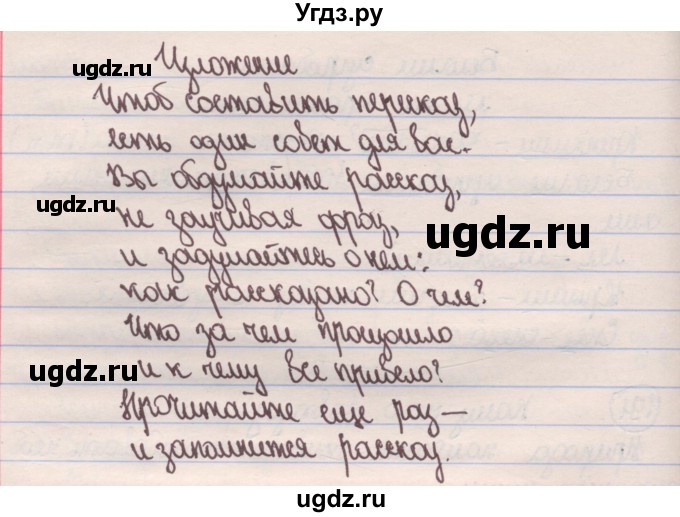 Угдз.ру
Изложение
ugdz.ru
ugdz.ru
Чтоб составить пересказ,
есть один совет для вас:
Вы обдумайте рассказ,
ugdz.ru
не заучивая фраз,
ugdz.ru
и задумайтесь о нём:
как рассказано? О чем?
Что за чем произошло
ugdz.ru
ugdz.ru
и к чему все привело?
Прочитайте еще раз –
и запомнится рассказ.
ugdz.ru
ugdz.ru